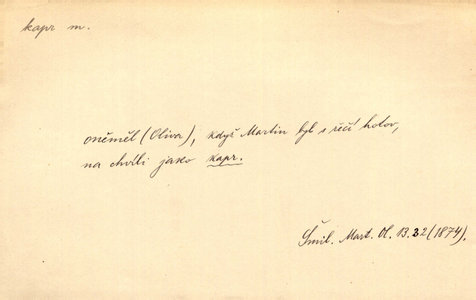 kapr m.
oněměl (Oliva), když Martin byl s řečí hotov,
na chvíli jako kapr.
Šmil. Mart. Ol. 13.22 (1874).